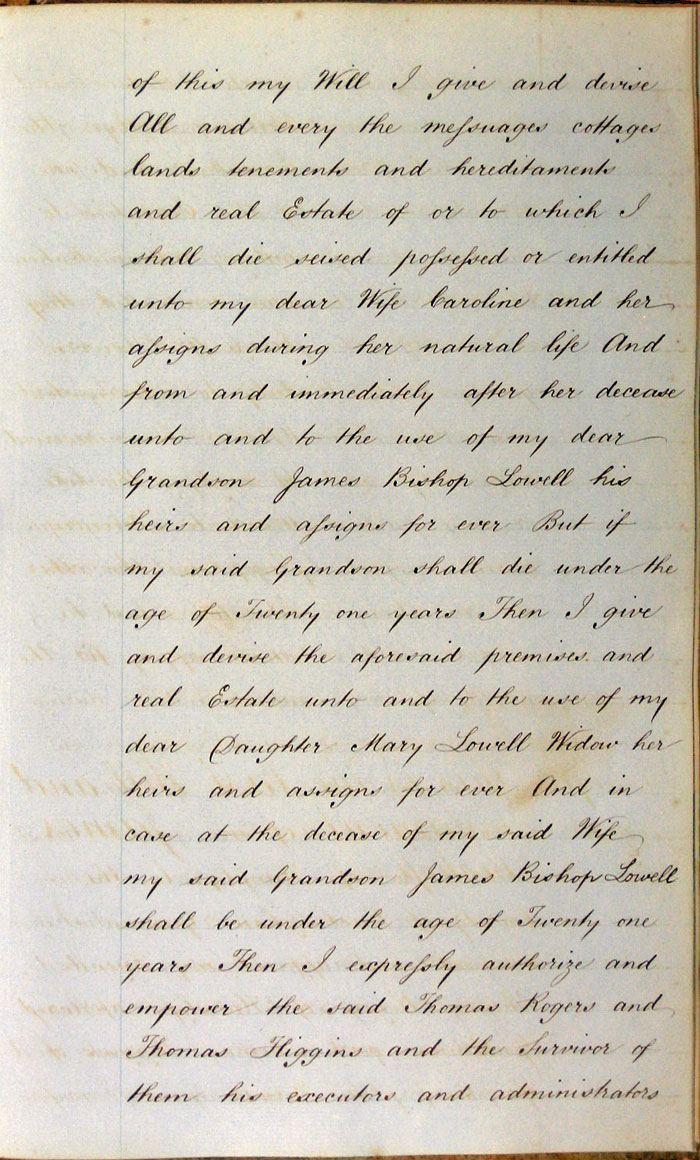 of this my Will I give and devise
All and every the meſsuages cottages
lands tenements and hereditaments
and real Estate of or to which I
shall die seised poſseſsed or entitled
unto my dear Wife Caroline and her
aſsigns during her natural life And
from and immediately after her decease
unto and to the use of my dear
Grandson James Bishop Lowell his
heirs and aſsigns for ever But if
my said Grandson shall die under the
age of Twenty one years Then I give
and devise the aforesaid premises and
real Estate unto and to the use of my
dear Daughter Mary Lowell Widow her
heirs and assigns for ever And in
case at the decease of my said Wife
my said Grandson James Bishop Lowell
shall be under the age of Twenty one
years Then I expreſsly authorize and
empower the said Thomas Rogers and
Thomas Higgins and the Survivor of
them his executors and administrators